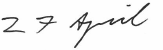 27 April